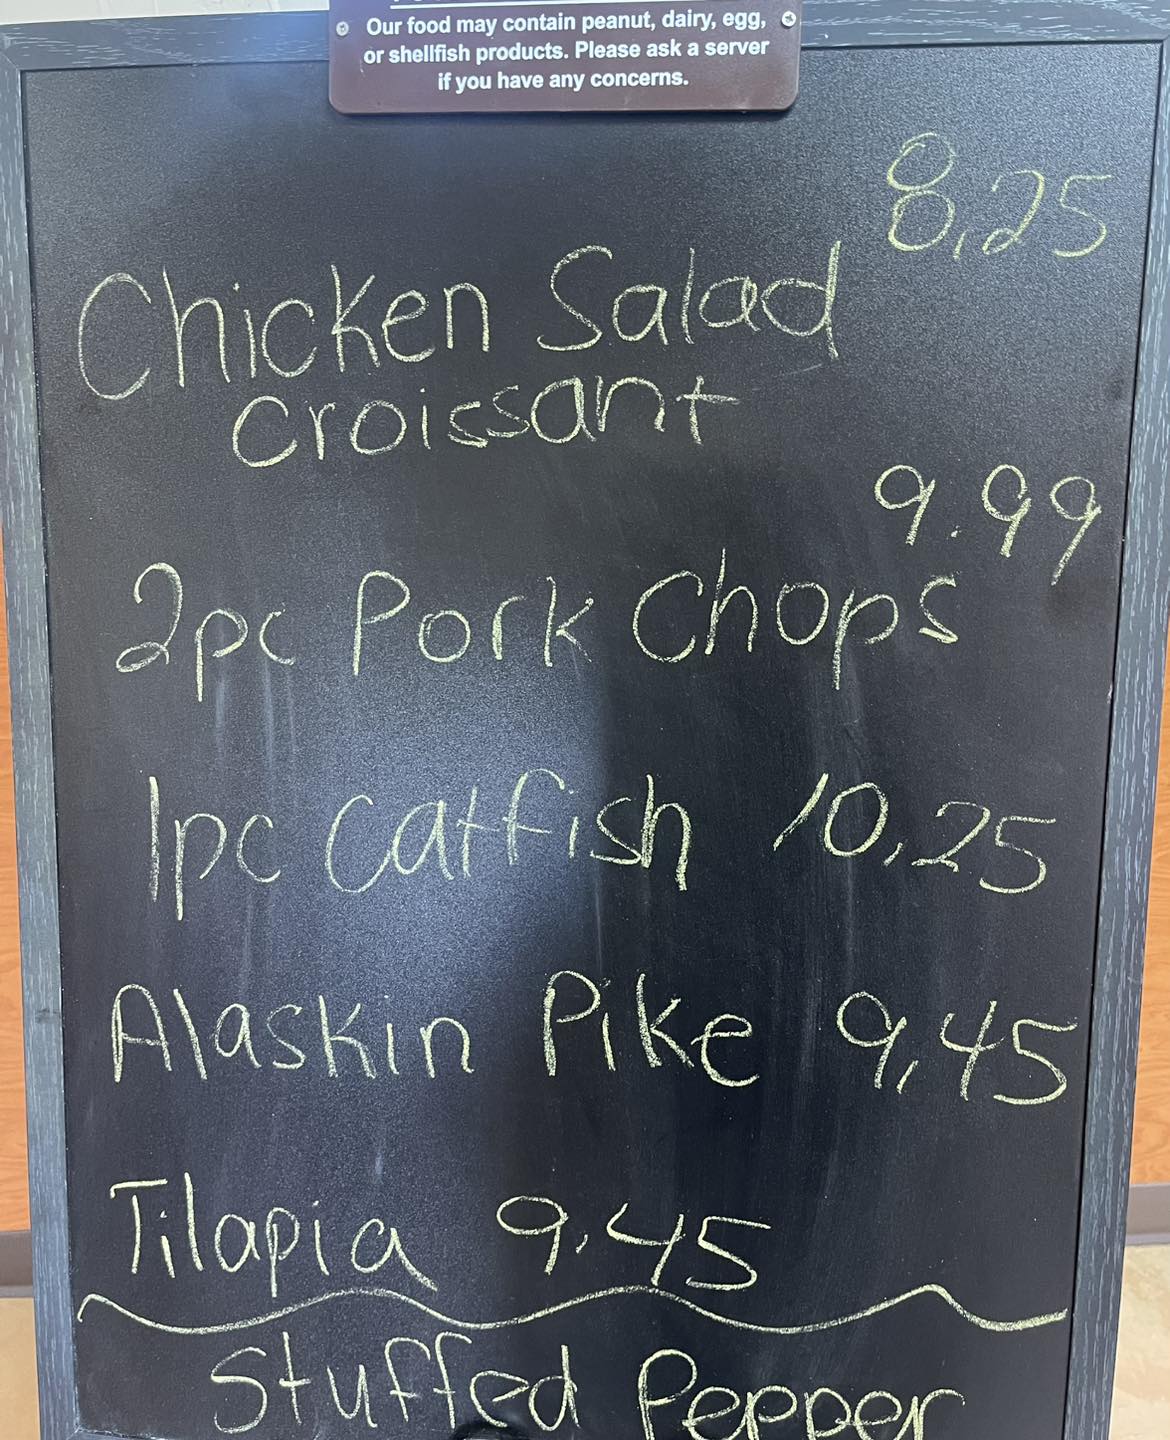 Our food may contain peanut, dairy, egg,
or shellfish products. Please ask a server
if you have any concerns.
8.25
Chicken Salad
Croissant
9.99
2pc Pork Chops
1pc Catfish 10.25
Alaskin Pike 9.45
Tilapia 9.45
Stuffed Pepper